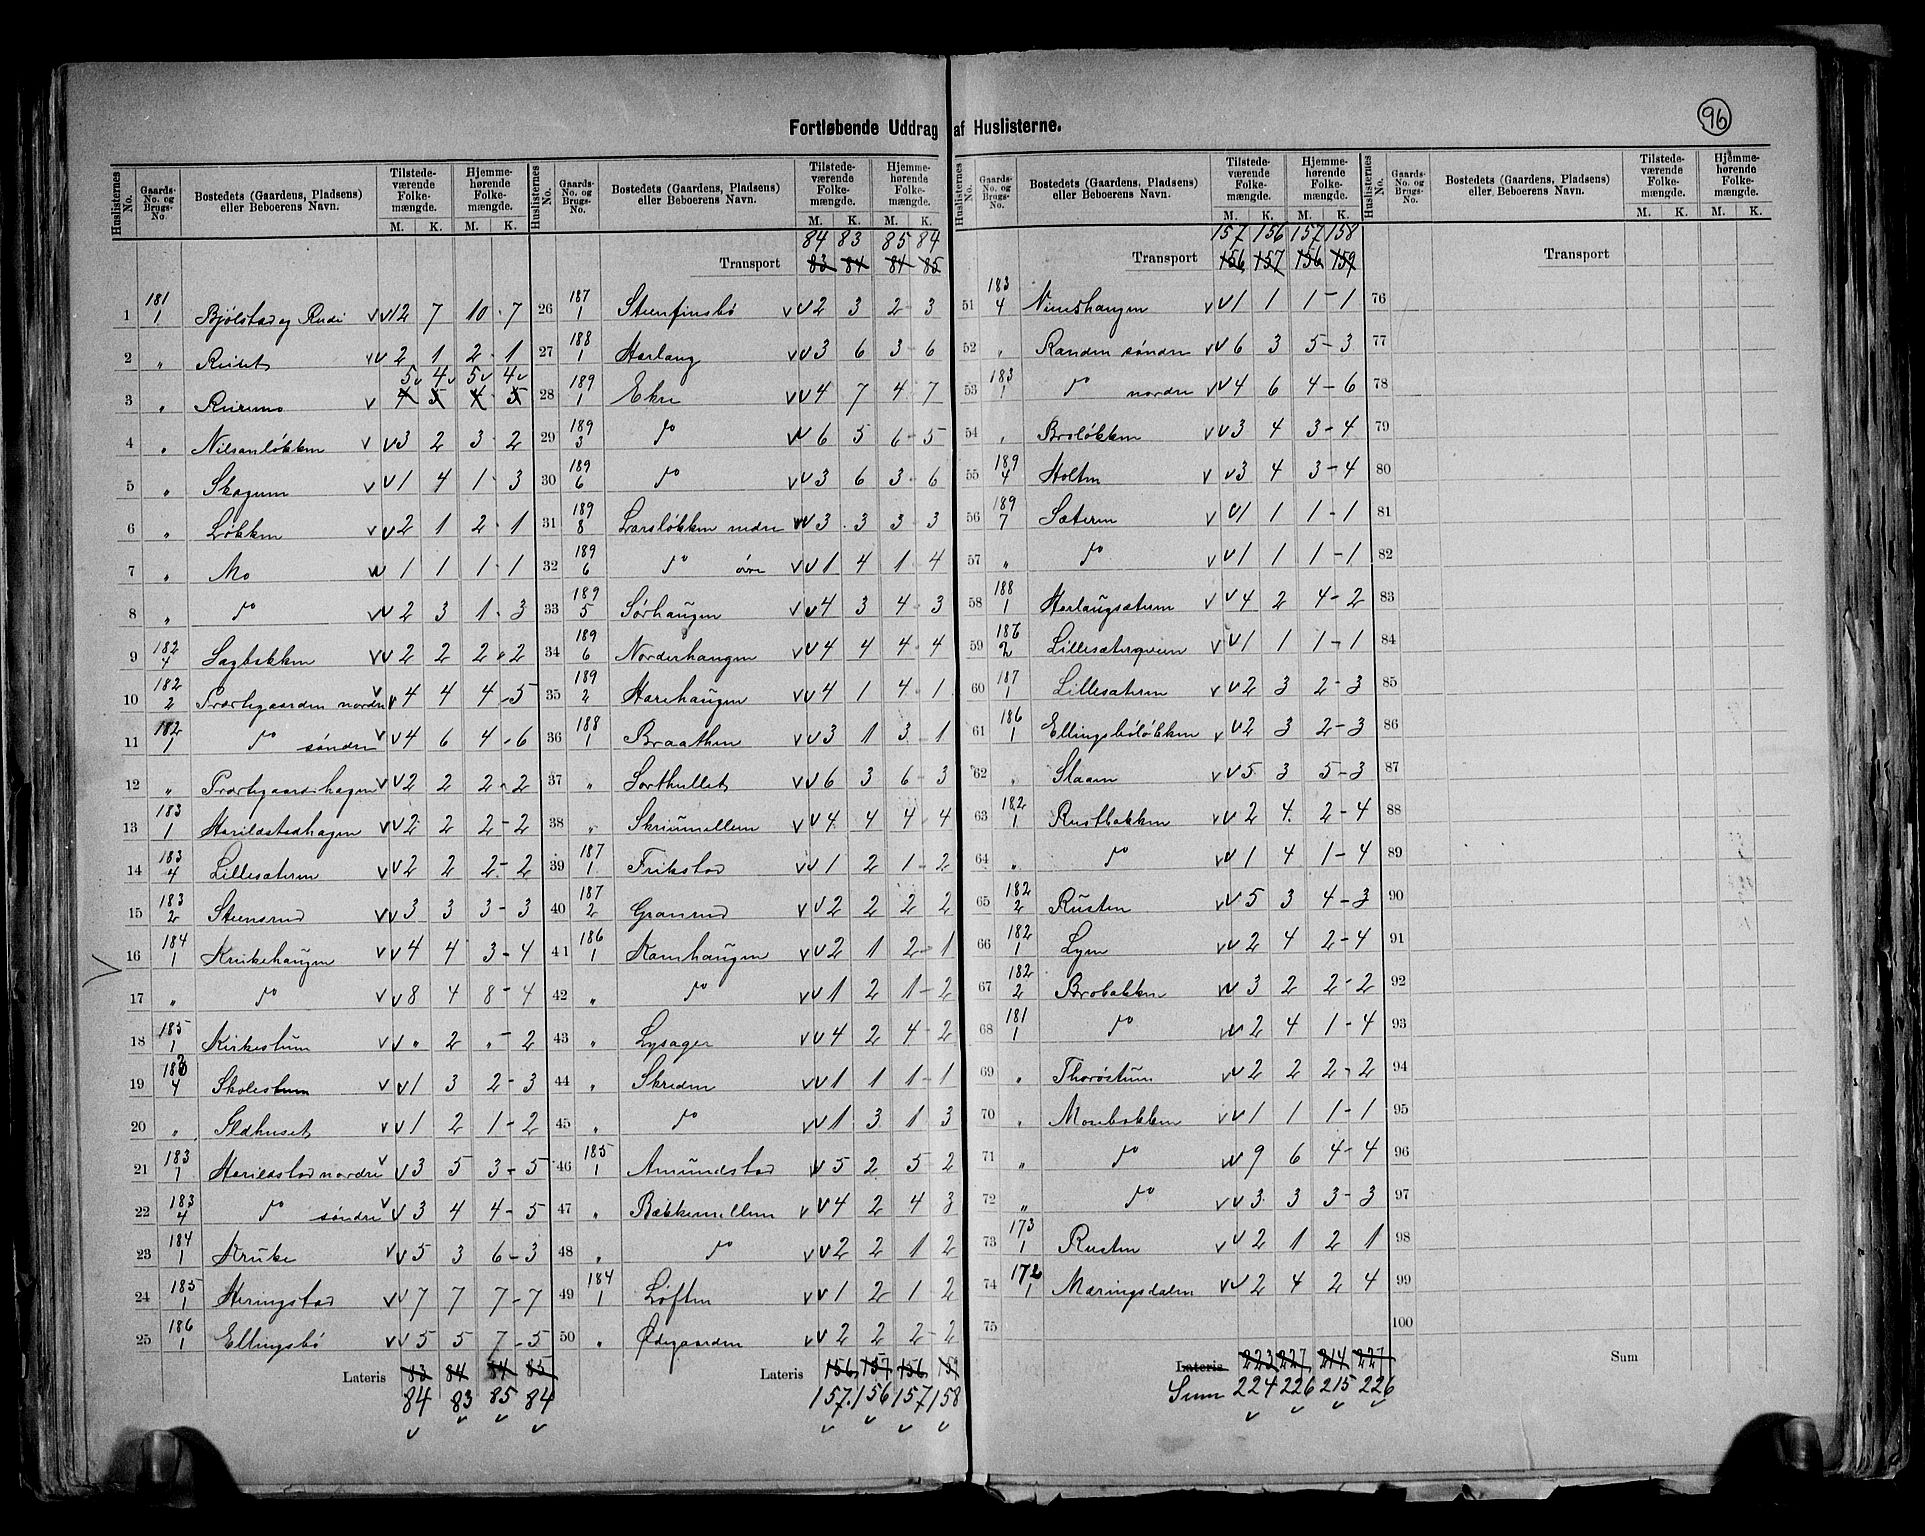 96
Fortløbende Uddrag af Huslisterne.
Huslisternes No. | Gaards-No. og Brugs-No. | Bostedets (Gaardens, Pladsens) eller Beboerens Navn. | Tilstedeværende Folkemængde. M. K. | Hjemmehørende Folkemængde. M. K.
1 181/1 Bjölstad og Rudi 12 7 10 - 7
2 " Ruset 2 1 2 - 1
3 " Ruirmo 5 4 5 4
4 " Nilsenlökken 3 2 3 - 2
5 " Skogum 1 4 1 - 3
6 " Lökken 2 1 2 - 1
7 " Mo 1 1 1 - 1
8 " do 2 3 1 - 3
9 182/4 Sagbakken 2 2 2 - 2
10 182/2 Prærtegaarden nordre 4 4 4 - 5
11 182/1 do söndre 4 6 4 - 6
12 " Prærtegaardshagen 2 2 2 - 2
13 183/1 Harildstadhagen 2 2 2 - 2
14 183/4 Lillesæteren 2 2 2 - 2
15 183/2 Steensrud 3 3 3 - 3
16 184/1 Krukehaugen 4 4 3 - 4
17 " do 8 4 8 - 4
18 185/1 Kirkestuen " 2 " - 2
19 182/4 Skolestuen 1 3 2 - 3
20 " Ildhuset 1 2 1 - 2
21 183/1 Harildstad nordre 3 5 3 - 5
22 183/4 do söndre 3 4 4 - 5
23 184/1 Kruke 5 3 6 - 3
24 185/1 Heringstad 7 7 7 - 7
25 186/1 Ellingsbö 5 5 7 - 5
Lateris 83 84 84 85
84 83 85 84
84 83 85 84
Transport 83 84 84 85
26 187/1 Steenfinsbö 2 3 2 - 3
27 188/1 Horlaug 3 6 3 - 6
28 189/1 Ekre 4 7 4 - 7
29 189/3 do 6 5 6 - 5
30 189/6 do 3 6 3 - 6
31 189/8 Larslökken nedre 3 3 3 - 3
32 189/6 do övre 1 4 1 - 4
33 189/5 Sörhaugen 4 3 4 - 3
34 189/6 Norderhaugen 4 4 4 - 4
35 189/2 Harehaugen 4 1 4 - 1
36 188/1 Braathen 3 1 3 - 1
37 " Sorthullet 6 3 6 - 3
38 " Skriumellem 4 4 4 - 4
39 187/1 Frikstad 1 2 1 - 2
40 187/2 Granrud 2 2 2 2
41 186/1 Kamhaugen 2 1 2 - 1
42 " do 1 2 1 - 2
43 " Lysager 4 2 4 - 2
44 " Skreden 1 1 1 - 1
45 " do 1 3 1 3
46 185/1 Amundstad 5 2 5 2
47 " Bækkemellem 4 2 4 3
48 " do 2 2 1 2
49 184/1 Löften 1 2 1 2
50 " Ödegaarden 2 2 2 - 2
Lateris 156 157 156 159
157 156 157 158
157 156 157 158
Transport 156 157 156 159
51 183/4 Nimshaugen 1 1 1 - 1
52 " Randen söndre 6 3 5 - 3
53 183/1 do nordre 4 6 4 - 6
54 " Brolökken 3 4 3 - 4
55 189/4 Holten 3 4 3 - 4
56 189/7 Sæteren 1 1 1 - 1
57 " do 1 1 1 - 1
58 188/1 Horlaugsæteren 4 2 4 - 2
59 186/2 Lillesæterqvern 1 1 1 - 1
60 187/1 Lillesæteren 2 3 2 - 3
61 186/1 Ellingsbölökken 2 3 2 - 3
62 " Slaaen 5 3 5 - 3
63 182/1 Rustbakken 2 4 2 - 4
64 " do 1 4 1 - 4
65 182/2 Rusten 5 3 4 - 3
66 182/1 Lyen 2 4 2 - 4
67 182/2 Brobakken 3 2 2 - 2
68 181/1 do 2 4 1 - 4
69 " Thoröstuen 2 2 2 - 2
70 " Mosebakken 1 1 1 - 1
71 " do 9 6 4 - 4
72 " do 3 3 3 - 3
73 173/1 Rusten 2 1 2 1
74 172/1 Mæringsdalen 2 4 2 4
75
Lateris 223 227 214 227
Sum 224 226 215 226
Transport
76
77
78
79
80
81
82
83
84
85
86
87
88
89
90
91
92
93
94
95
96
97
98
99
100
Sum